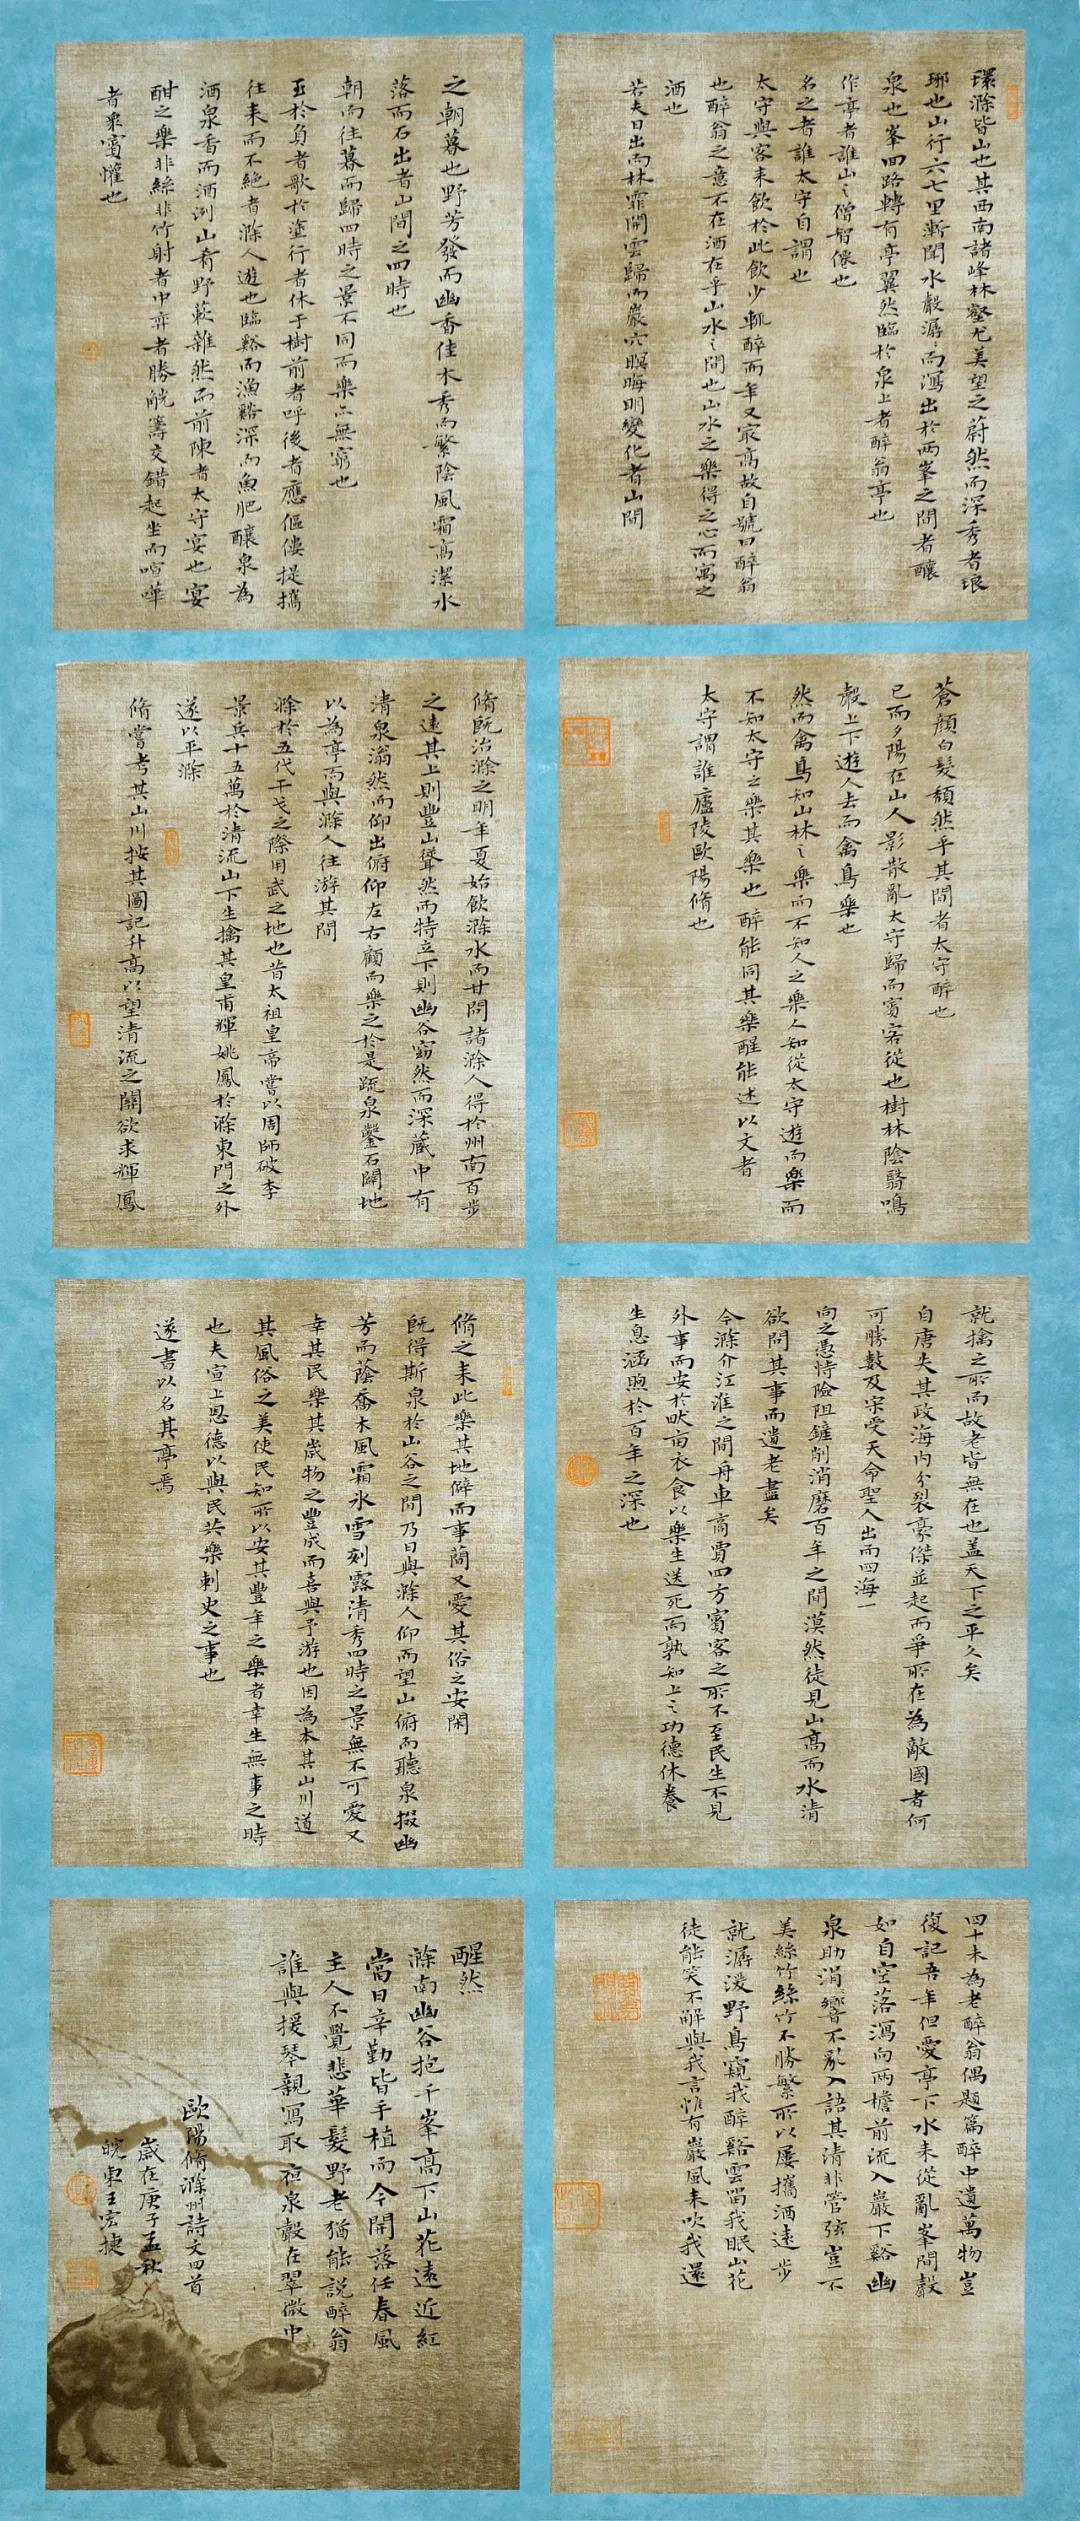 環滁皆山也其西南諸峰林壑尤美望之蔚然而深秀者琅
琊也山行六七里漸聞水聲潺〻而瀉出於兩峯之間者釀
泉也峯回路轉有亭翼然臨於泉上者醉翁亭也
作亭者誰山〻僧智僊也
名之者誰太守自謂也
太守與客来飲於此飲少輒醉而年又冣高故自號曰醉翁
也醉翁之意不在酒在乎山水〻間也山水之樂得之心而寓之
酒也
若夫日出而林霏開雲歸而巖穴暝晦明變化者山間
之朝暮也野芳發而幽香佳木秀而繁陰風霜高潔水
落而石出者山間之四時也
朝而往暮而歸四時之景不同而樂亦無窮也
至於負者歌於塗行者休于樹前者呼後者應傴僂提攜
往来而不絕者滁人遊也臨谿而漁谿深而魚肥釀泉為
酒泉香而酒洌山肴野蔌雜然而前陳者太守宴也宴
酣之樂非絲非竹射者中弈者勝觥籌交錯起坐而喧嘩
者衆賓懽也
蒼顏白髮頹然乎其間者太守醉也
已而夕陽在山人影散亂太守歸而賓客從也樹林陰翳鳴
聲上下遊人去而禽鳥樂也
然而禽鳥知山林〻樂而不知人之樂人知從太守遊而樂而
不知太守之樂其樂也醉能同其樂醒能述以文者
太守謂誰廬陵歐陽脩也
脩既治滁之明年夏始飲滁水而甘問諸滁人得於州南百步
之遠其上則豐山聳然而特立下則幽谷窈然而深藏中有
清泉滃然而仰出俯仰左右顧而樂之於是疏泉鑿石闢地
以為亭而與滁人往游其間
滁於五代干戈之際用武之地也昔太祖皇帝嘗以周師破李
景兵十五萬於清流山下生擒其皇甫輝姚鳳於滁東門之外
遂以平滁
脩嘗考其山川按其圖記升高以望清流之關欲求輝鳳
就擒之所而故老皆無在也蓋天下之平久矣
自唐失其政海内分裂豪傑並起而爭所在為敵國者何
可勝數及宋受天命聖人出而四海一
向之憑恃險阻鏟削消磨百年之間漠然徒見山高而水清
欲問其事而遺老盡矣
今滁介江淮之間舟車商賈四方賓客之所不至民生不見
外事而安於畎畝衣食以樂生送死而孰知上〻功德休養
生息涵煦於百年之深也
脩之来此樂其地僻而事簡又愛其俗之安閑
既得斯泉於山谷之間乃日與滁人仰而望山俯而聽泉掇幽
芳而蔭喬木風霜冰雪刻露清秀四時之景無不可愛又
幸其民樂其歲物之豐成而喜與予游也因為本其山川道
其風俗之美使民知所以安其豐年之樂者幸生無事之時
也夫宣上恩德以與民共樂刺史之事也
遂書以名其亭焉
四十未為老醉翁偶題篇醉中遺萬物豈
復記吾年但愛亭下水来從亂峯間聲
如自空落瀉向兩檐前流入巖下谿幽
泉助涓響不亂人語其清非管弦豈不
美絲竹絲竹不勝繁所以屢攜酒遠步
就潺湲野鳥窺我醉谿雲留我眠山花
徒能笑不解與我言惟有巖風来吹我還
醒然
滁南幽谷抱千峯高下山花遠近紅
當日辛勤皆手植而今開落任春風
主人不覺悲華髮野老猶能說醉翁
誰與援琴親寫取夜泉聲在翠微中
歐陽脩滁州詩文四首
歲在庚子孟秋
皖東王宏捷